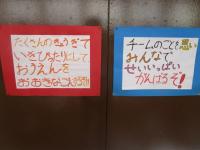 たくさんのきょうぎで
いきぴったりにして
おうえんを
おおきなこえで
チームのことを思い
みんなで
せいいっぱい
がんばるぞ!